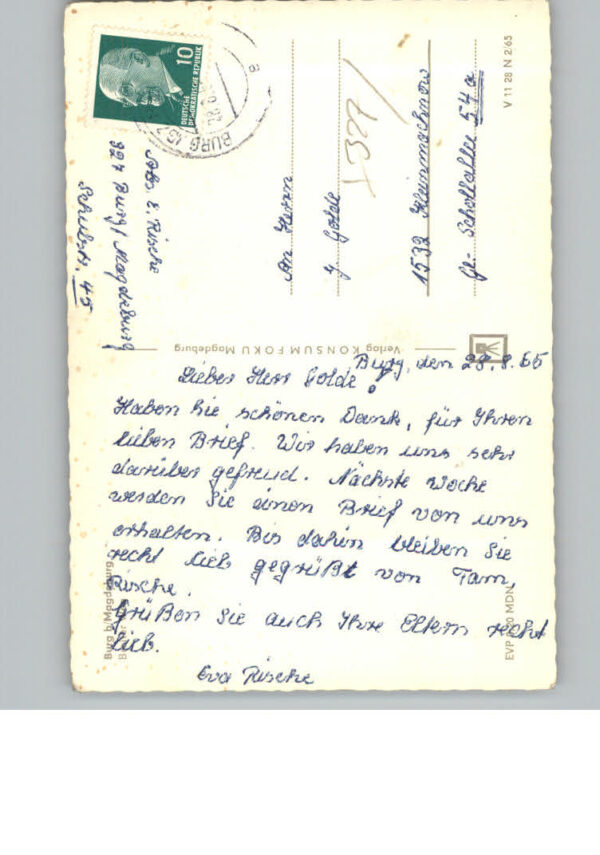 10
DEUTSCHE
DEMOKRATISCHE REPUBLIK
BURG
Abs. E. Rische
327 Burg / Magdeburg
Schulstr. 45
327
An Herrn
J. Golde
1532 Kleinmachnow
Gr- Schollallee 54a
V 11 28 N 2/65
Verlag KONSUM FOKU Magdeburg
Burg, den 28.8.65
Lieber Herr Golde!
Haben Sie schönen Dank, für Ihren
lieben Brief. Wir haben uns sehr
darüber gefreud. Nächste Woche
werden Sie einen Brief von uns
erhalten. Bis dahin bleiben Sie
recht lieb gegrüßt von Fam,
Rische.
Grüßen Sie auch Ihre Eltern recht
lieb.
Eva Rische
Burg b/Magdeburg
EVP MDN